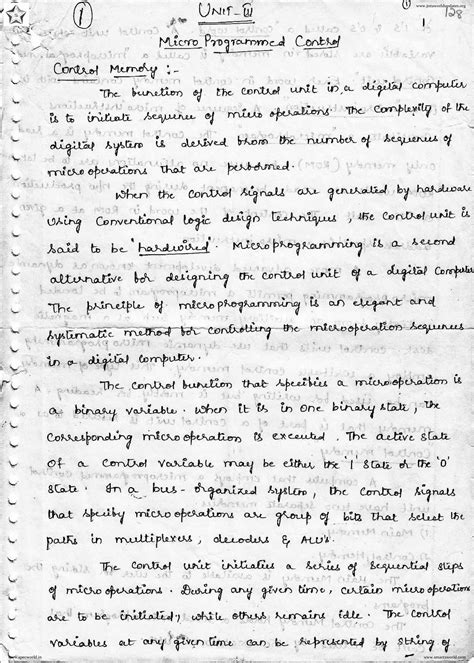 www.jntuworldupdates.org
① UNIT-III ① 1 128
Micro Programmed Control
Control Memory :-
The bunction of the control unit in a digital computer
is to initiate sequence of micro operations. The complexity of the
digital system is derived brom the number of sequences of
microoperations that are perbormed.
When the control signals are generated by hardware
using Conventional logic design techniques, the control unit is
said to be "hardwired". Microprogramming is a second
alternative bor designing the control unit of a digital Computer
The principle of microprogramming is an elegant and
systematic method bor controlling the microoperation sequences
in a digital computer.
The control bunction that specibies a microoperation is
a binary variable. When it is in one binary state, the
corresponding microoperation is executed. The active state
of a control variable may be either the '1' state or the '0'
state. In a bus-organized system, the control signals
that speciby microoperations are group of bits that select the
paths in multiplexers, decoders & ALU's.
The control unit initiates a series of sequential steps
of microoperations. During any given time, certain microoperations
are to be initiated, while others remains idle. The control
variables at any given time can be represented by string of
www.smartzworld.com